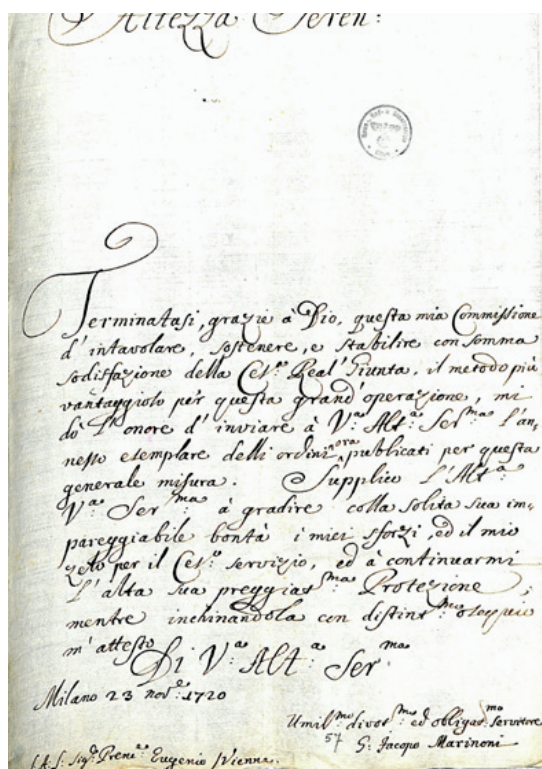 Altezza Seren:
Terminatasi, grazie à Dio, questa mia Commissione
d'intavolare, sostenere, e stabilire con somma
sodisfazione della Ces.ª Real' Giunta, il metodo più
vantaggioso per questa grand'operazione, mi
dò l'onore d'inviare à V.ª Alt.ª Ser.ma l'an-
nesso esemplare delli ordini ora publicati per questa
generale misura. Supplico l'Alt.ª
V.ª Ser.ma à gradire colla solita sua im-
pareggiabile bontà i miei sforzi, ed il mio
zelo per il Ces.º servizio, ed à continuarmi
l'alta sua preggias.ma Protezione;
mentre inchinandola con distint.mo ossequio
m'attesto
Di V.ª Alt.ª Ser.ma
Milano 23 nov.e 1720
Umil.mo divot.mo ed obligat.mo servitore
57 G: Jacopo Marinoni
Eugenio Vienna.